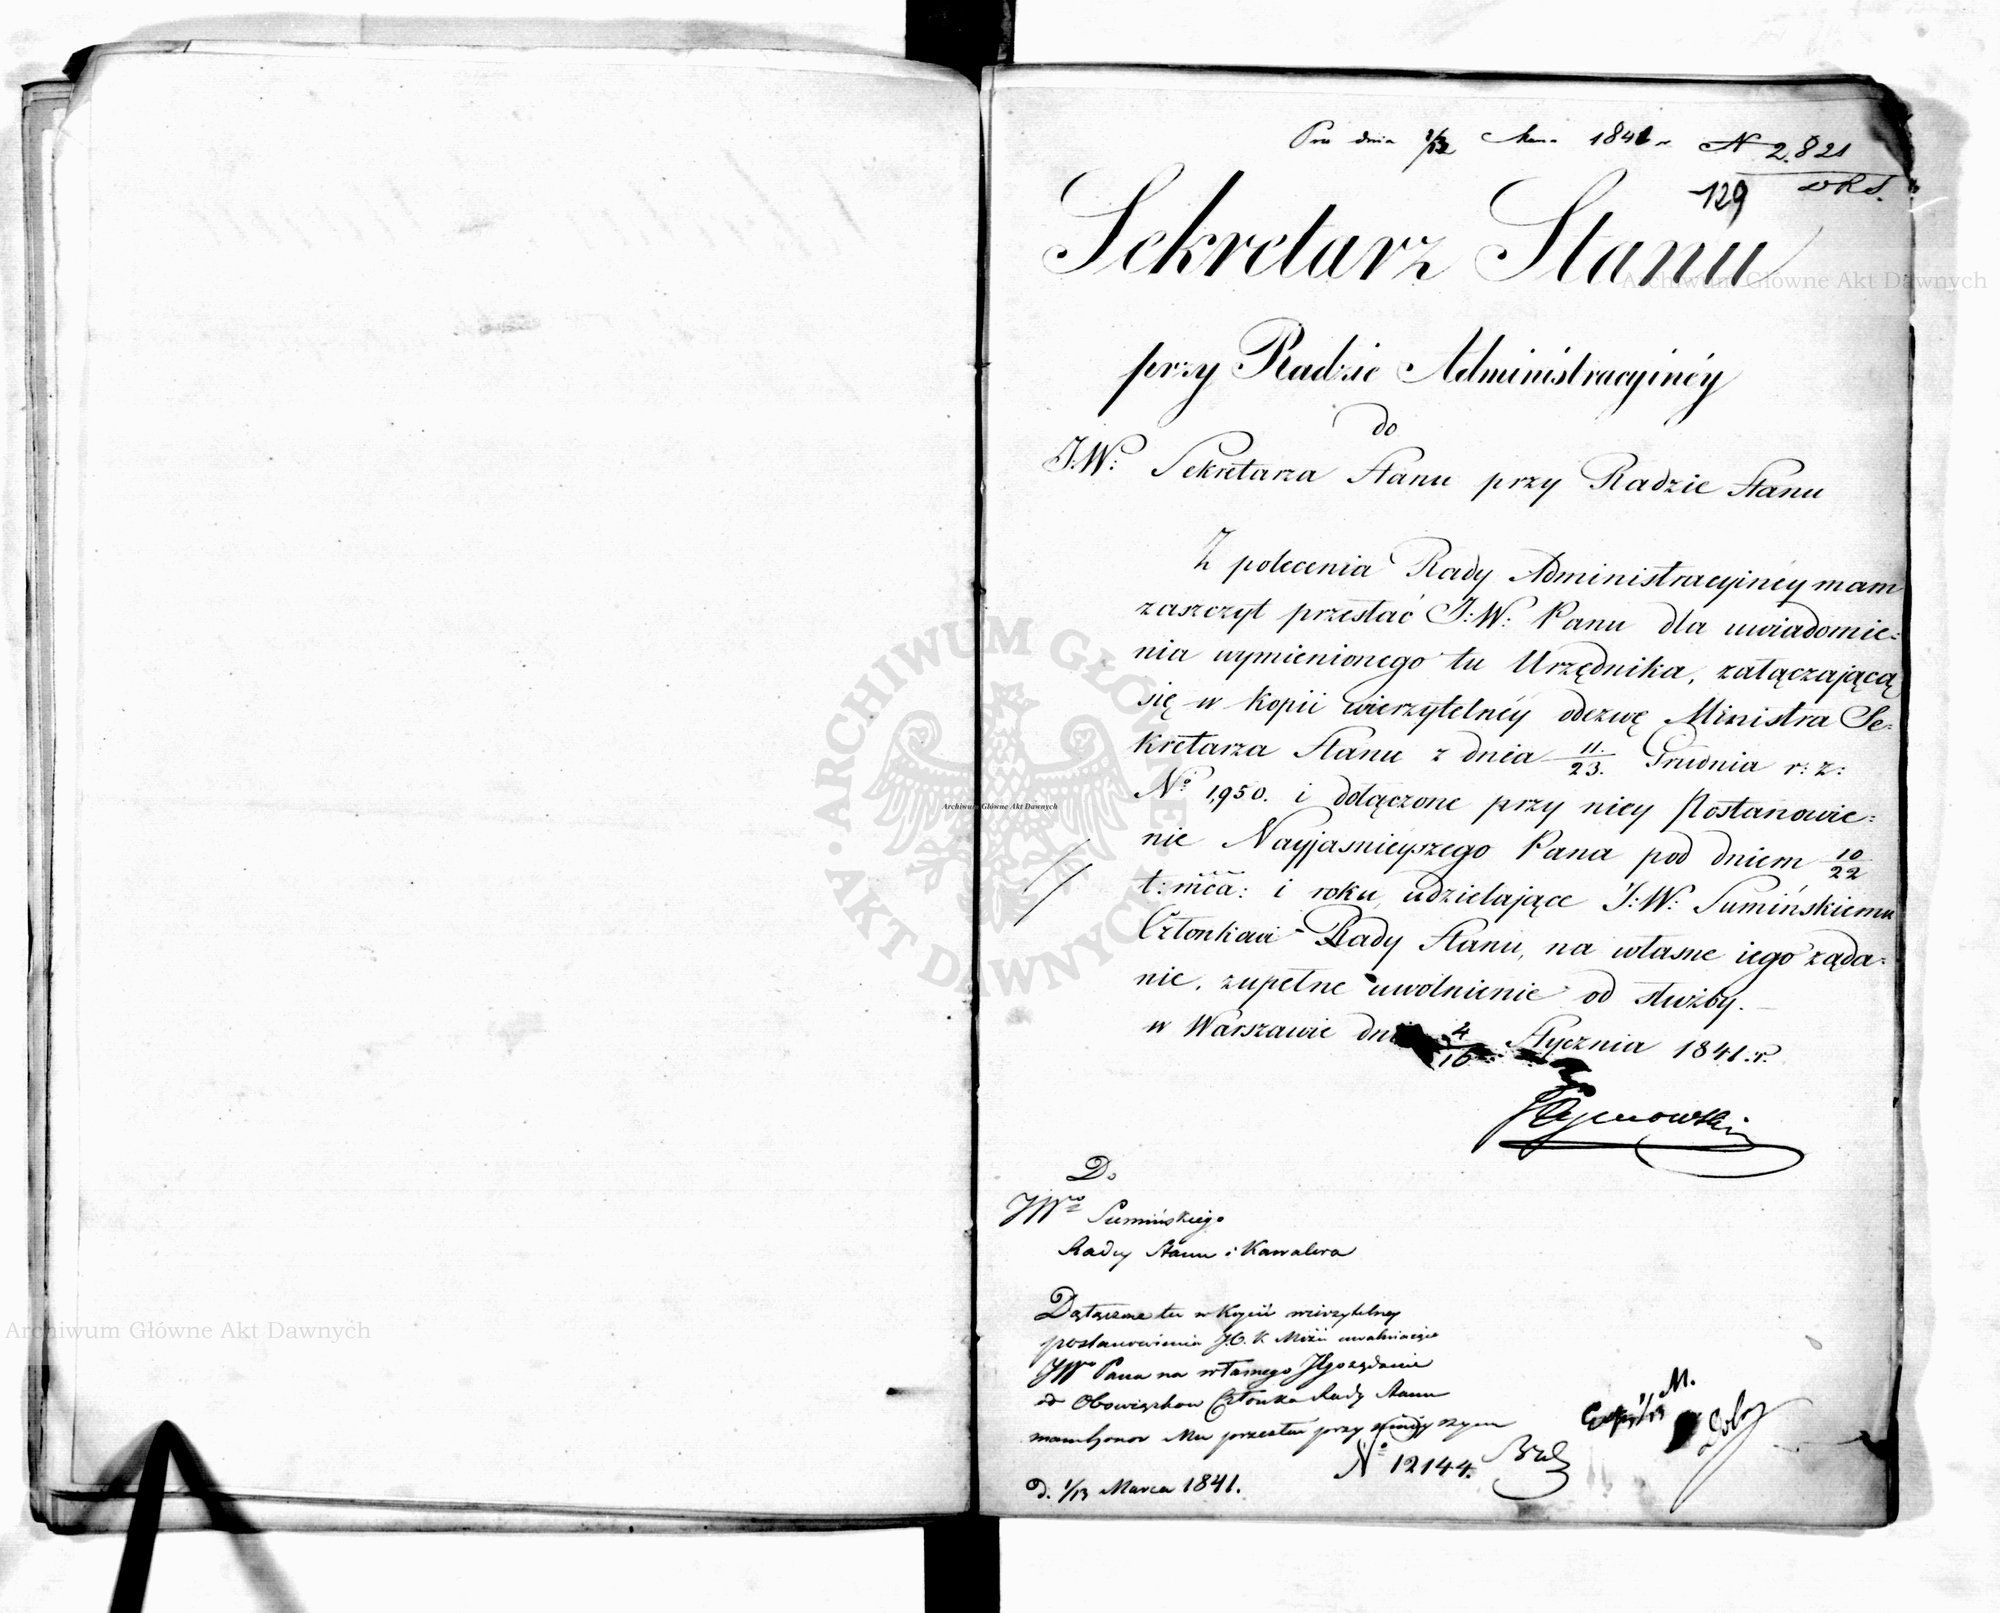 dnia 1/13 1841 N 2,821
129
Sekretarz Stanu
przy Radzie Administracyinéy
do
J.W: Sekretarza Stanu przy Radzie Stanu
Z polecenia Rady Administracyinéy mam
zaszczyt przesłać J:W: Panu dla uwiadomie:
nia wymienionego tu Urzędnika, załączającą
się w kopii wierzytelnéy odezwę Ministra Se:
kretarza Stanu z dnia 11/23. Grudnia r: z:
No 1,950. i dołączone przy niey Postanowie:
nie Nayjasnieyszego Pana pod dniem 10/22
t: mca: i roku, udzielające J:W: Sumińskiemu
Członkowi Rady Stanu, na własne iego żąda:
nie, zupełne uwolnienie od służby.
w Warszawie dnia 4/16 Stycznia 1841.r.
Do
JWo Sumińskiego
Radcy Stanu i Kawalera
Dołączone tu w Kopii wierzytelney
postanowienie
JWo Pana na własnego żądanie
od Obowiązków Członka Rady Stanu
mam honor Mu przesłać przy
No 12144.
d. 1/13 Marca 1841.
Archiwum Główne Akt Dawnych
ARCHIWUM GŁÓWNE AKT DAWNYCH
Archiwum Główne Akt Dawnych
Archiwum Główne Akt Dawnych